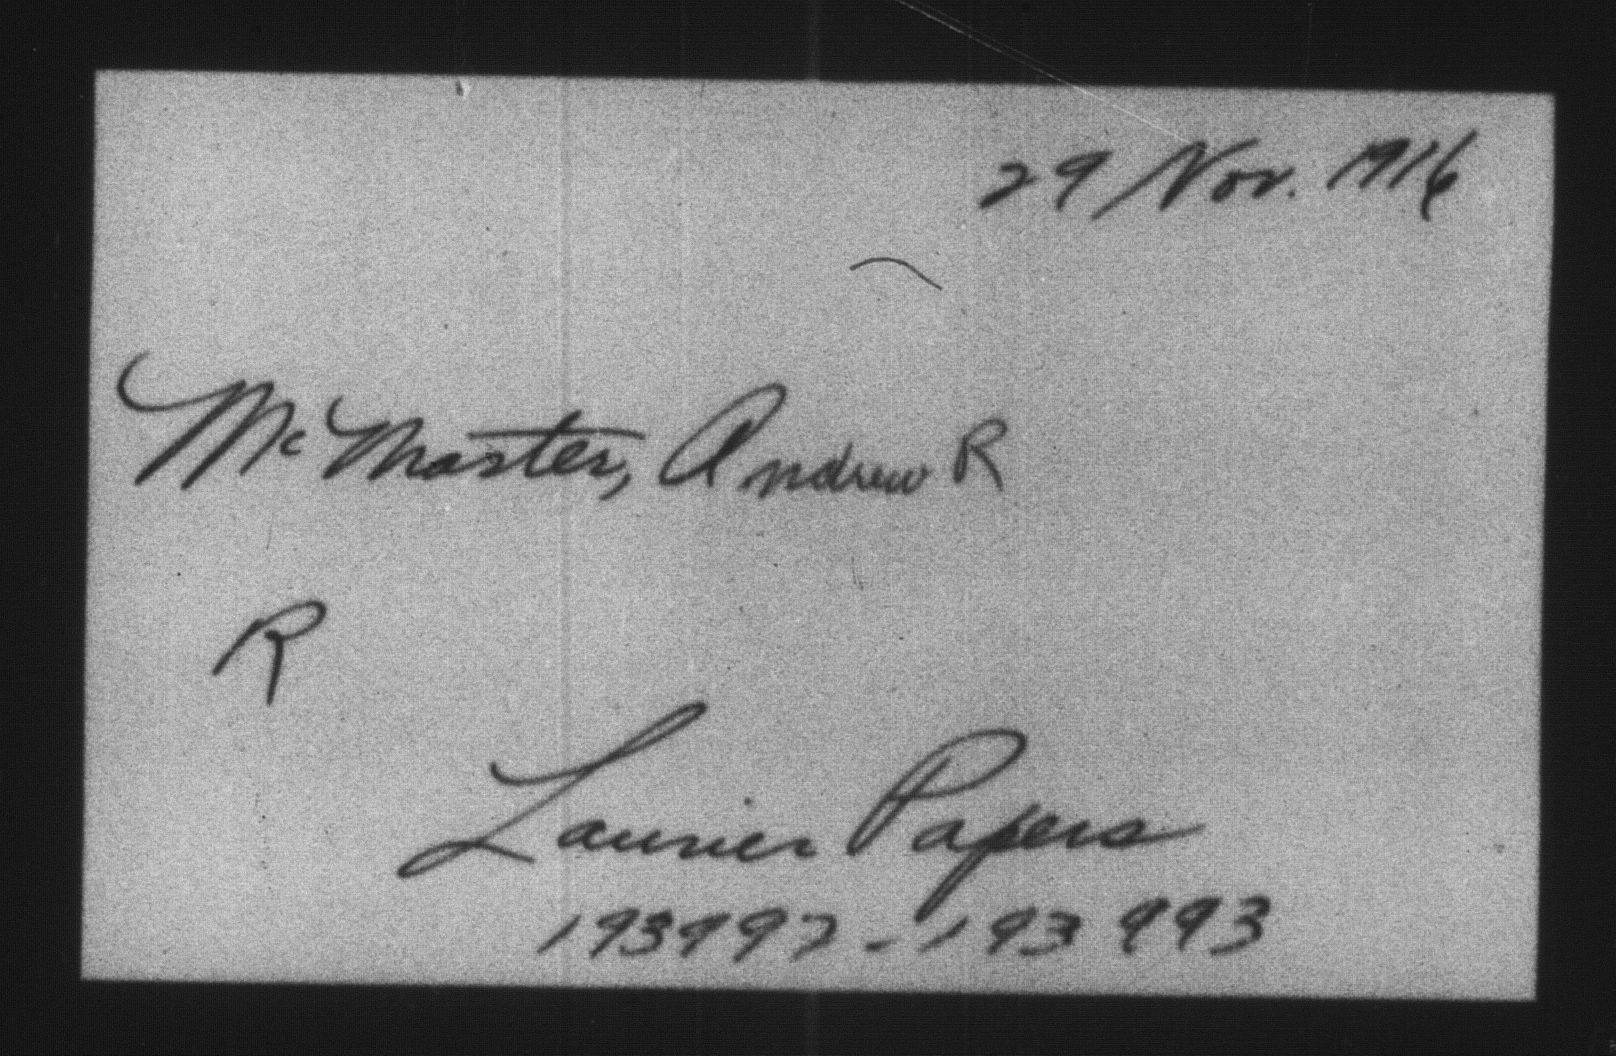 29 Nov. 1916
McMaster, Andrew R
R
Laurier Papers
193992 - 193993